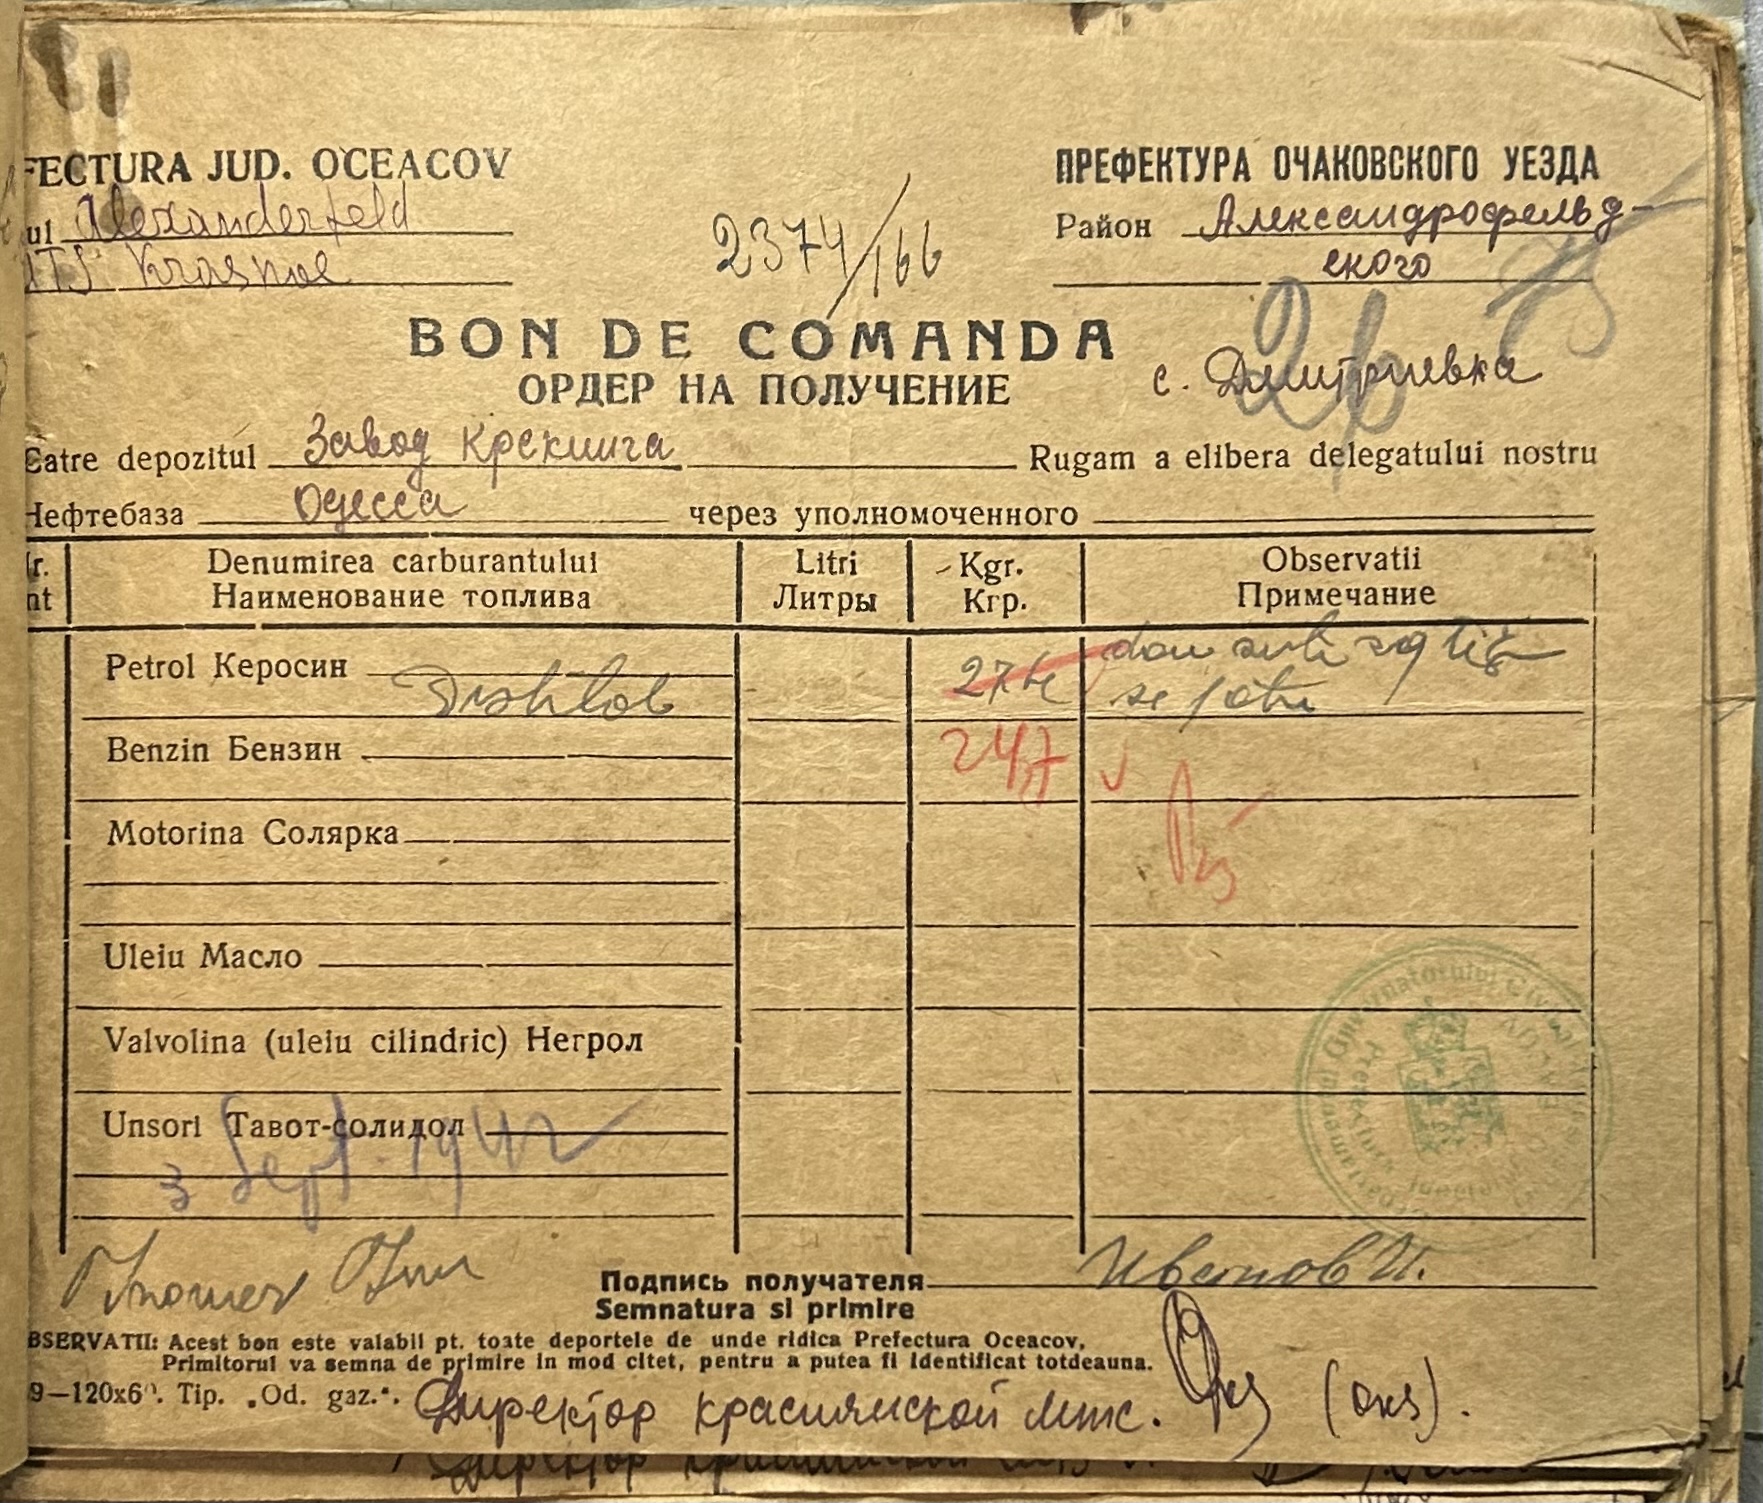 FECTURA JUD. OCEACOV
ul Alexanderfeld
MTS Krasnoe
2374/166
ПРЕФЕКТУРА ОЧАКОВСКОГО УЕЗДА
Район Александрофельд-
ского
BON DE COMANDA
ОРДЕР НА ПОЛУЧЕНИЕ
с. Дмитриевка
Catre depozitul Завод Крекинга Rugam a elibera delegatului nostru
Нефтебаза Одесса через уполномоченного
r. Denumirea carburantului Litri Kgr. Observatii
nt Наименование топлива Литры Кгр. Примечание
Petrol Керосин
Benzin Бензин 247
Motorina Солярка
Uleiu Масло
Valvolina (uleiu cilindric) Негрол
Unsori Тавот-солидол
3 Sept. 1942
Подпись получателя Иванов И.
Semnatura si primire
BSERVATII: Acest bon este valabil pt. toate deportele de unde ridica Prefectura Oceacov,
Primitorul va semna de primire in mod citet, pentru a putea fi identificat totdeauna.
9—120x60. Tip. „Od. gaz.“.
Директор краснянской мтс. (окс).